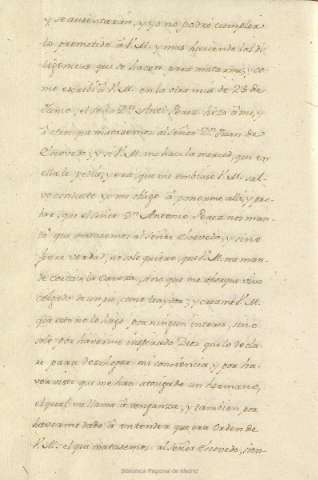 y se ausentarán, y yo no podré cumplir
lo prometido à V.M. y mas haciendo las di
ligencias que se hacen para matarme; co-
mo escribí à V.M. en la otra mia de 23 de
Junio, el señor Dn. Anto. Perez hizo à mi, y
à otros, que matasemos al señor Dn. Juan de
Escovedo; y si V.M. me hace la merced, que en
ella le pedia, y era, que me embiase V.M. sal-
vo conducto yo me obligo à ponerme allá, y pro-
bar, que el señor Dn. Antonio Perez nos man-
tó que matasemos al señor Escovedo, y si no
fuere verdad, no solo quiero, que V.M. me man-
de cortar la Caveza, sino que me ahorque vivo
colgado de un pie, como traydor; y crea me V.M.
que esto no lo hago por ningun interes, sino
solo por haverme inspirado Dios que lo decla
re para descargar mi conciencia y por ha-
ver visto que me han atosigado un hermano,
el qual me llama à venganza, y tambien por
haverme dado à entender que era Orden de
V.M. el que matasemos al señor Escovedo, sien-
Biblioteca Regional de Madrid